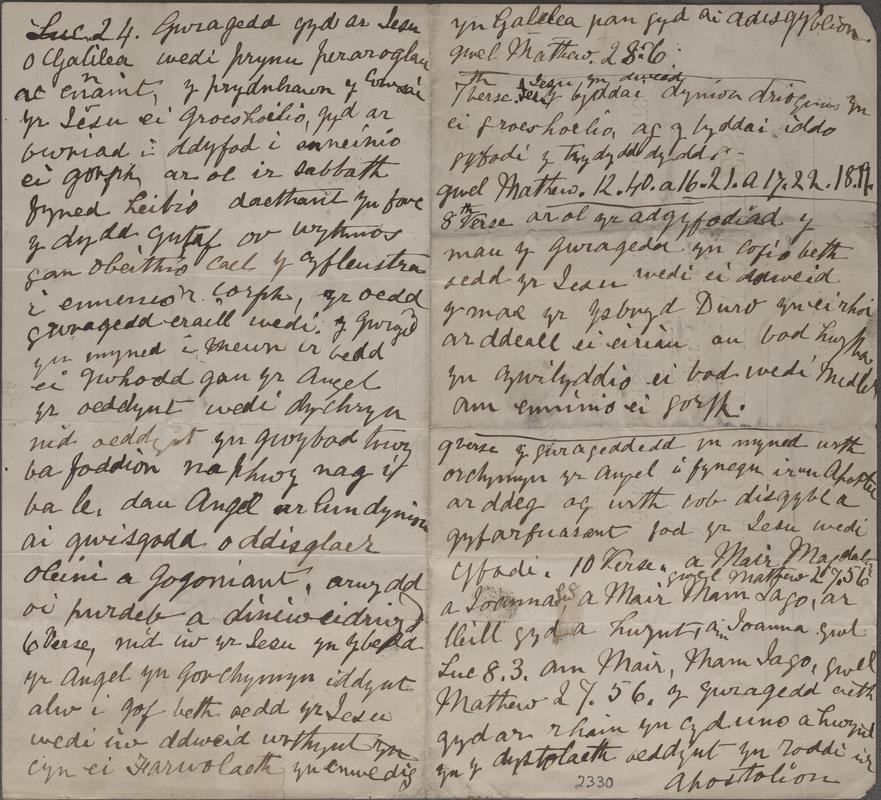 Luc 24. Gwragedd gyd ar Iesu
o Galilea wedi prynu peraroglau
at enaint, y prydnhawn y
yr Iesu ei groeshoelio, gyd ar
bwriad i ddyfod i enneinio
ei gorph, ar ol ir sabbath
fyned heibio daethant yn fore
y dydd cyntaf or wythnos
gan obeithio cael y cyfleustra
i enneinio'r corph, yr oedd
gwragedd eraill wedi. y
yn myned i mewn ir bedd
ei gwhodd gan yr Angel
yr oeddynt wedi dychryn
nid oeddynt yn gwybod trwy
ba foddion na phwy nag i
ba le, dau Angel ar lun dynion
ai gwisgodd o ddisglaer
oleini a Gogoniant, arwydd
oi purdeb a diniweidrwydd
6 Verse, nid iw yr Iesu yn y bedd
yr Angel yn Gorchymyn iddynt
alw i gof beth oedd yr Iesu
wedi iw ddweid wrthynt yn
cyn ei Farwolaeth yn enwedig
yn Galilea pan gyd ai adisgyblion.
gwel Mathew. 28.6
7th verse. Iesu yn dweid
y byddai dynion drigionus yn
ei groeshoelio, ag y byddai iddo
gyfodi y trydydd dydd.
gwel Mathew. 12.40. a 16.21. a 17.22. 18.19.
8th Verse ar ol yr adgyfodiad y
mau y gwragedd yn cofio beth
oedd yr Iesu wedi ei ddweid
y mae yr Ysbryd Duw yn eirhoi
ar ddeall ei eiriau au bod hwytha
yn cywilyddio ei bod wedi
am enninio ei gorph.
9 verse y gwrageddedd yn myned wrth
orchymyn yr Angel i fynegu ir un Apostol
ar ddeg ag wrth bob disgybl a
gyfarfuasant fod yr Iesu wedi
Cyfodi. 10 Verse. a Mair Magdalen
gwel Mathew 27.56
a Joanna, a Mair Mam Iago, ar
lleill gyd a hwynt, am Joanna gwel
Luc 8.3. am Mair, Mam Iago, gwel
Mathew 27.56. y Gwragedd eith
gyd ar rhain yn cyd uno a hwynt
yn y dystolaeth oeddynt yn roddi ir
Apostolion
2330